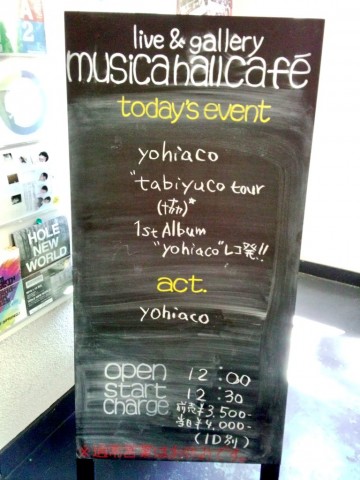 live & gallery
musicahallcafé
today's event
yohiaco
"tabiyuco tour
1st Album
"yohiaco"レコ発!!
act.
yohiaco
open 12:00
start 12:30
charge 前売¥3,500-
当日¥4,000-
(1D別)
HOLE
NEW
WORLD